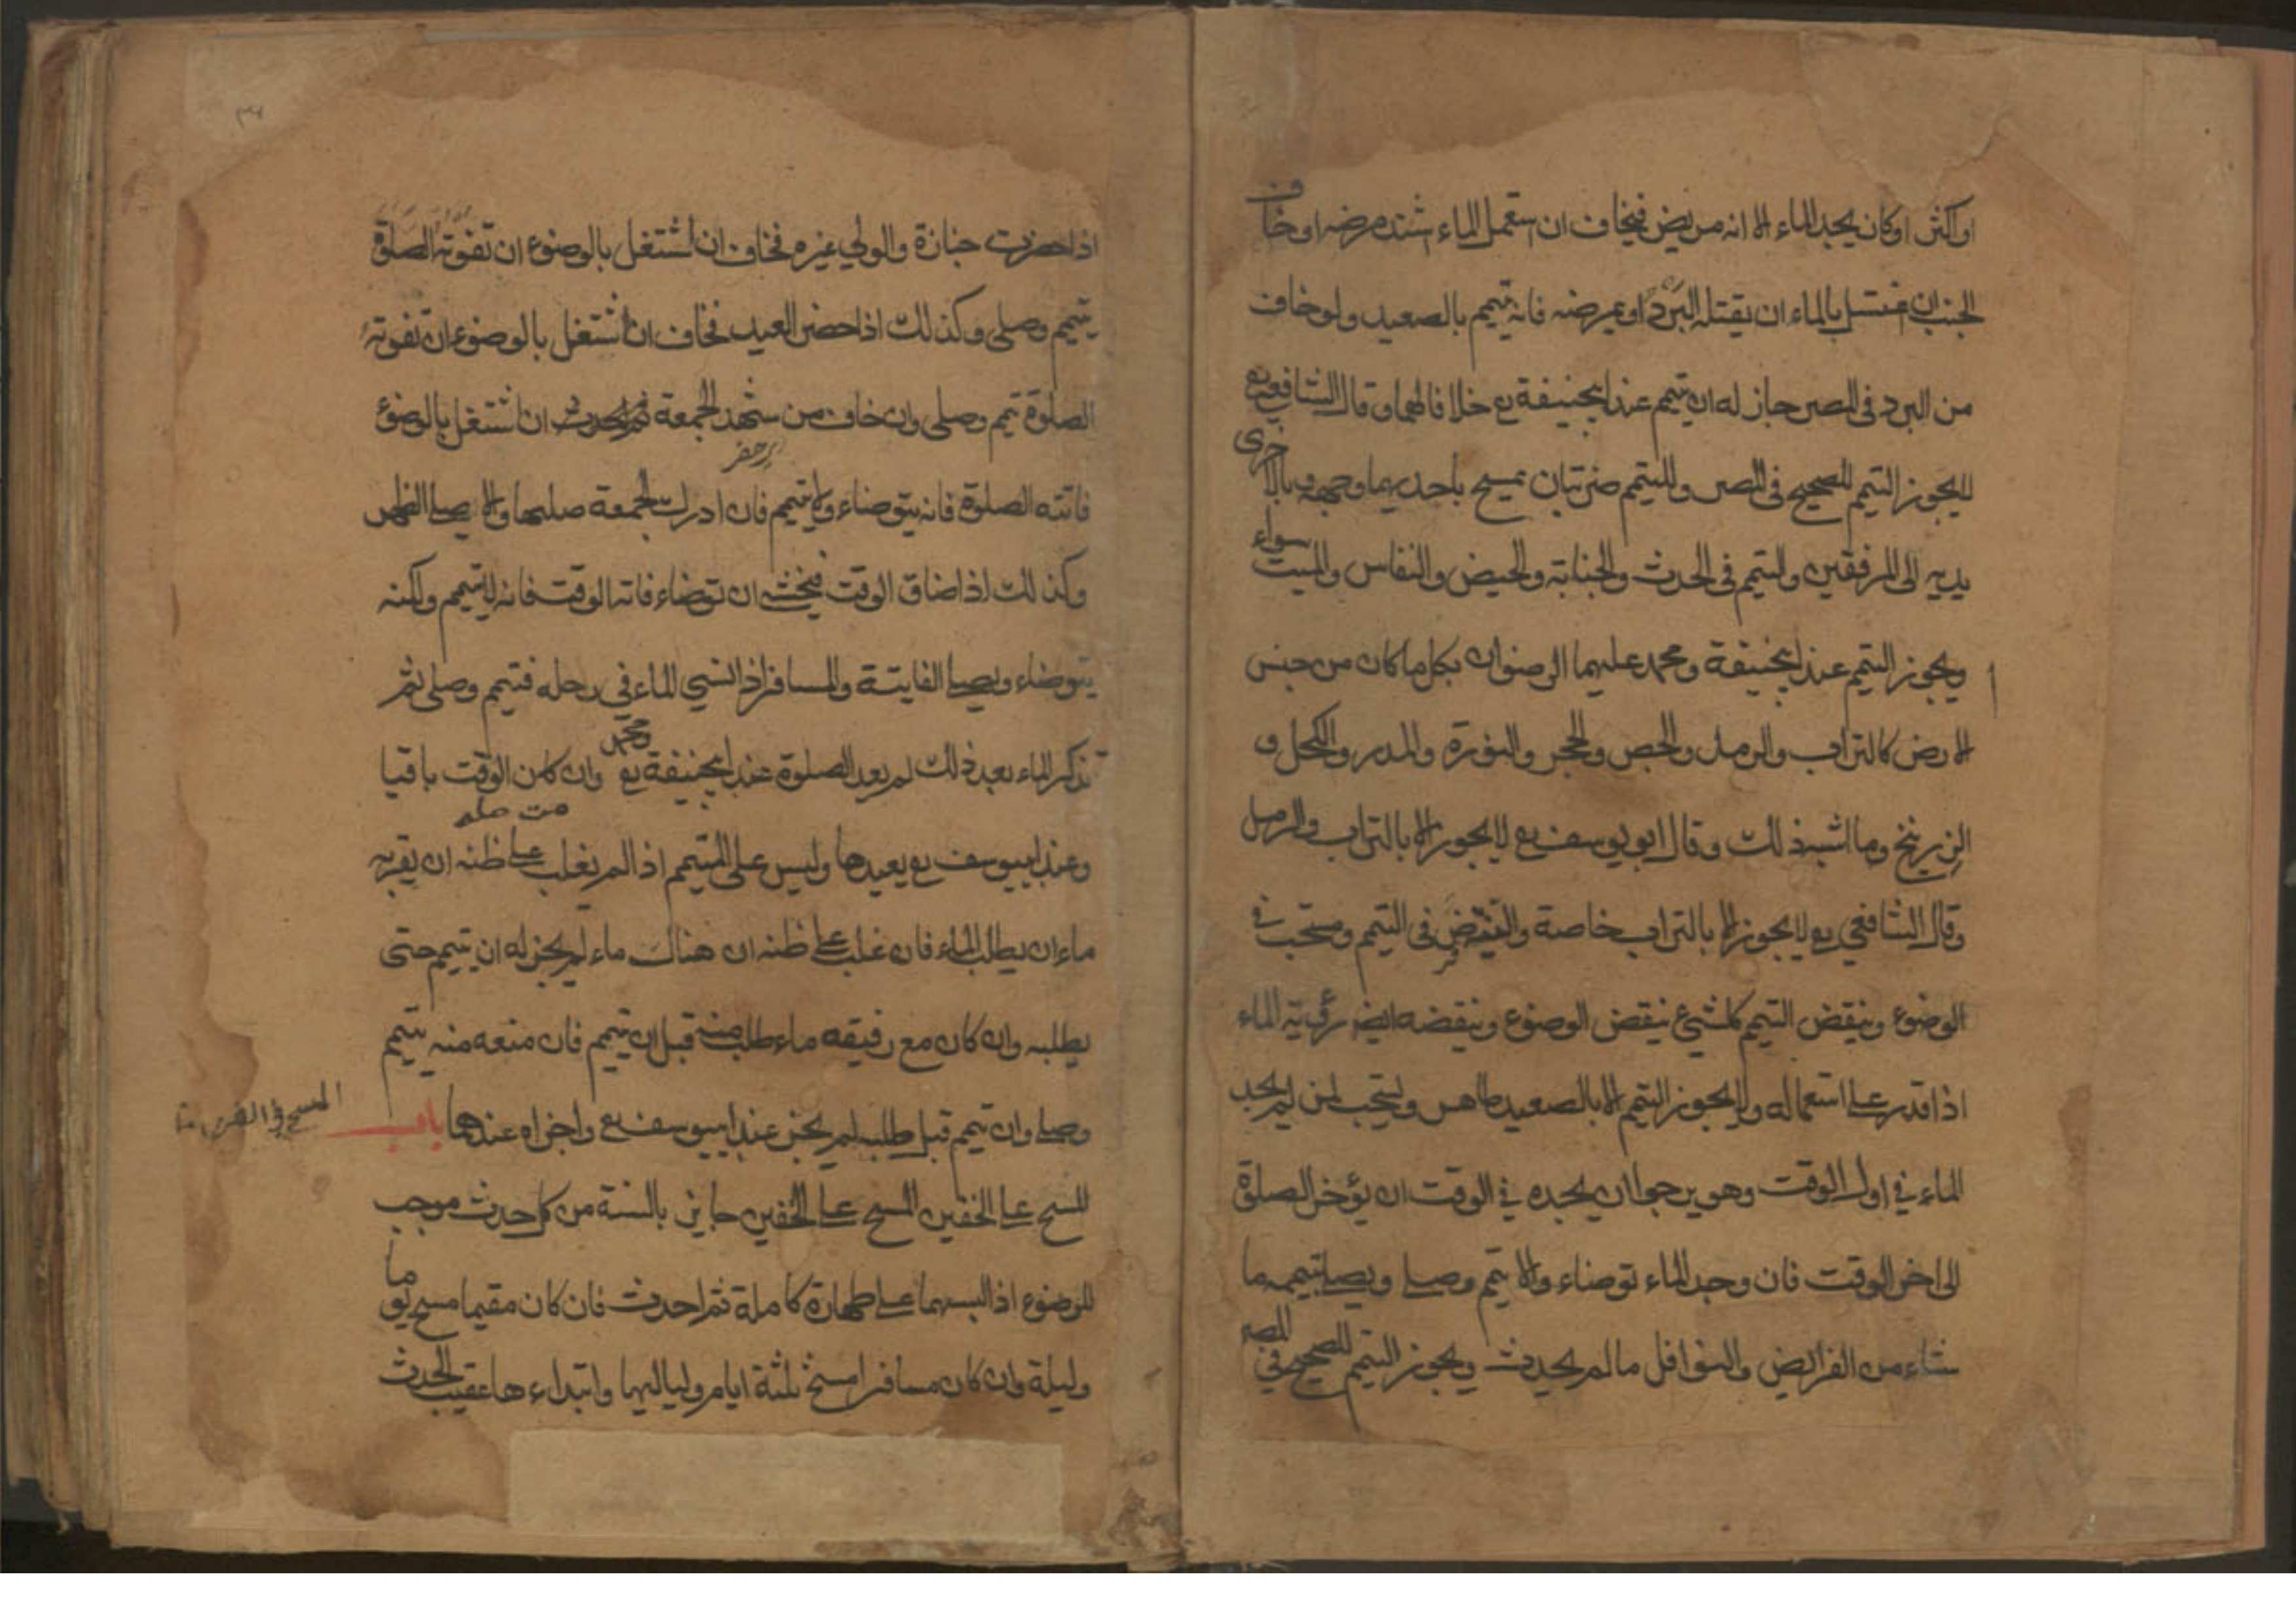 او اكثر او كان يجد الماء الا انه مريض فيخاف ان استعمل الماء اشتد مرضه او خاف
الجنب ان اغتسل بالماء ان يقتله البرد او يمرضه فانه يتيمم بالصعيد ولو خاف
من البرد في المصر جاز له ان يتيمم عند ابيحنيفة رح خلافا لهما وقال الشافعي رح
لا يجوز التيمم للصحيح في المصر والتيمم ضربتان يمسح باحديهما وجهه وبالاخرى
يديه الى المرفقين والتيمم في الحدث والجنابة والحيض والنفاس والميت سواء
ويجوز التيمم عند ابيحنيفة ومحمد عليهما الرضوان بكل ما كان من جنس
الارض كالتراب والرمل والجص والحجر والنورة والمدر والكحل و
الزرنيخ وما اشبه ذلك وقال ابو يوسف رح لا يجوز الا بالتراب والرمل
وقال الشافعي رح لا يجوز الا بالتراب خاصة والنية فرض في التيمم ومستحب في
الوضوء وينقض التيمم كل شيء ينقض الوضوء وينقضه ايضا رؤية الماء
اذا قدر على استعماله ولا يجوز التيمم الا بالصعيد طاهر ويستحب لمن لم يجد
الماء في اول الوقت وهو يرجوا ان يجده في الوقت ان يؤخر الصلوة
الى اخر الوقت فان وجد الماء توضاء والا تيمم وصلى ويصلي بتيممه ما
شاء من الفرايض والنوافل ما لم يحدث ويجوز التيمم للصحيح في المصر
اذا حضرت جنازة والولي غيره فخاف ان اشتغل بالوضوء ان تفوته الصلوة
يتيمم وصلى وكذلك اذا حضر العيد فخاف ان اشتغل بالوضوء ان تفوته
الصلوة تيمم وصلى وان خاف من شهد الجمعة ان اشتغل بالوضوء
فاتته الصلوة فانه يتوضاء ولا يتيمم فان ادرك الجمعة صليها والا يصلي الظهر
وكذلك اذا ضاق الوقت فيخشى ان توضاء فاته الوقت فانه لا يتيمم ولكنه
يتوضاء ويصلي الفايتة والمسافر اذا نسي الماء في رحله فتيمم وصلى ثم
تذكر الماء بعد ذلك لم يعد الصلوة عند ابيحنيفة ومحمد رح وان كان الوقت باقيا
وعند ابيوسف رح يعيدها وليس على المتيمم اذا لم يغلب على ظنه ان يقربه
ماء ان يطلب الماء فان غلب على ظنه ان هناك ماء لم يجز له ان يتيمم حتى
يطلبه وان كان مع رفيقه ماء طلب منه قبل ان يتيمم فان منعه منه يتيمم
وصلى وان تيمم قبل طلبه لم يجز عند ابيوسف رح واجزاه عندهما باب
المسح على الخفين المسح على الخفين جايز بالسنة من كل حدث موجب
للوضوء اذا لبسهما على طهارة كاملة ثم احدث فان كان مقيما مسح يوما
وليلة وان كان مسافرا مسح ثلثة ايام ولياليها وابتداءها عقيب الحدث